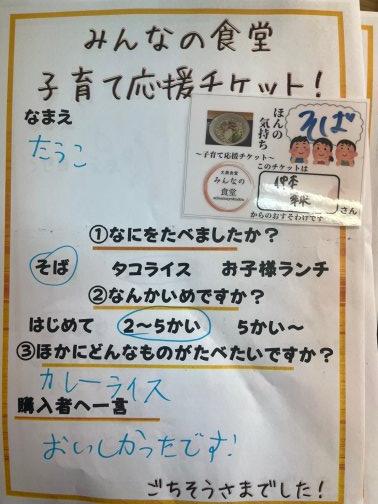 みんなの食堂
子育て応援チケット!
なまえ
たうこ
ほんの
気持ち
そば
~子育て応援チケット~
このチケットは
大衆食堂
みんなの
食堂
さん
からのおすそわけです
①なにをたべましたか?
そば タコライス お子様ランチ
②なんかいめですか?
はじめて 2~5かい 5かい~
③ほかにどんなものがたべたいですか?
カレーライス
購入者へ一言
おいしかったです!
ごちそうさまでした!